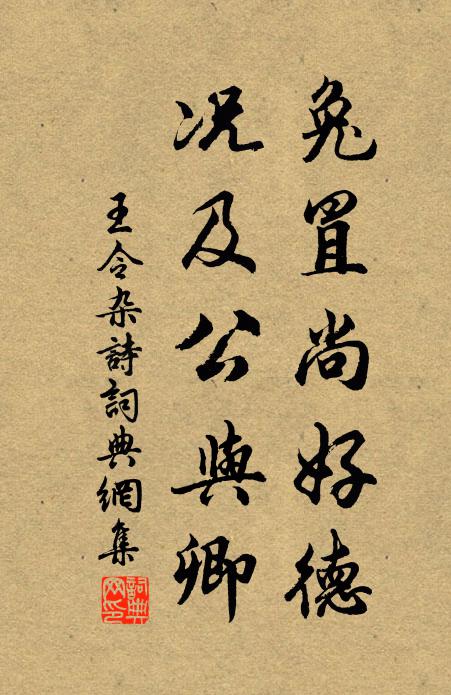 兔罝尚好德
况及公與卿
王令杂詩詞典網集
詞典網印